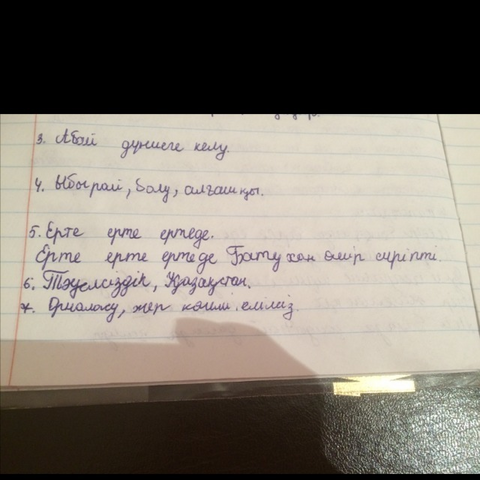 3. Абай дүниеге келу.
4. Ыбырай, болу, алғашқы.
5. Ерте ерте ертеде.
Ерте ерте ертеде Бату хан өмір сүріпті.
6. Тәуелсіздік, Қазақстан.
7. Орналасу, жер көлемі.